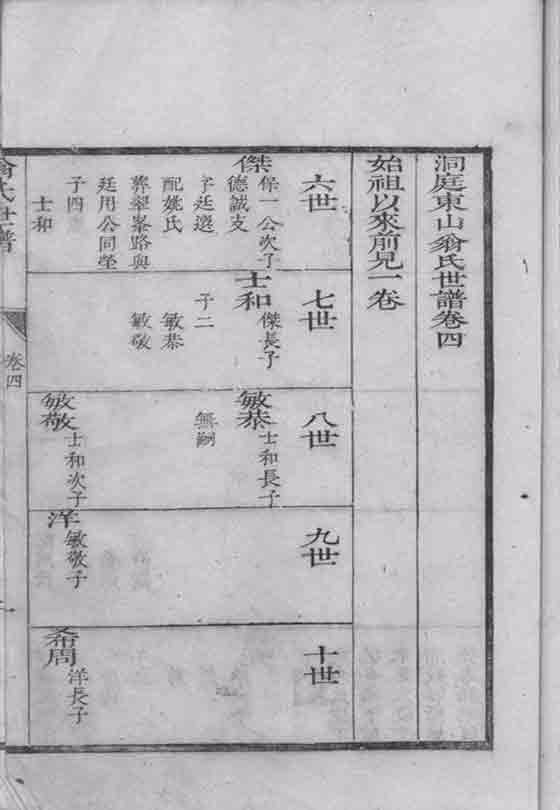 洞庭東山翁氏世譜卷四
始祖以來前見一卷
六世
傑
保一公次子
德誠支
字廷選
配姚氏
葬翠峯路與
廷用公同塋
子四
士和
七世
士和
傑長子
子二
敏恭
敏敬
八世
敏恭
士和長子
無嗣
敏敬
士和次子
九世
洋
敏敬子
十世
希周
洋長子
翁氏世譜
卷四